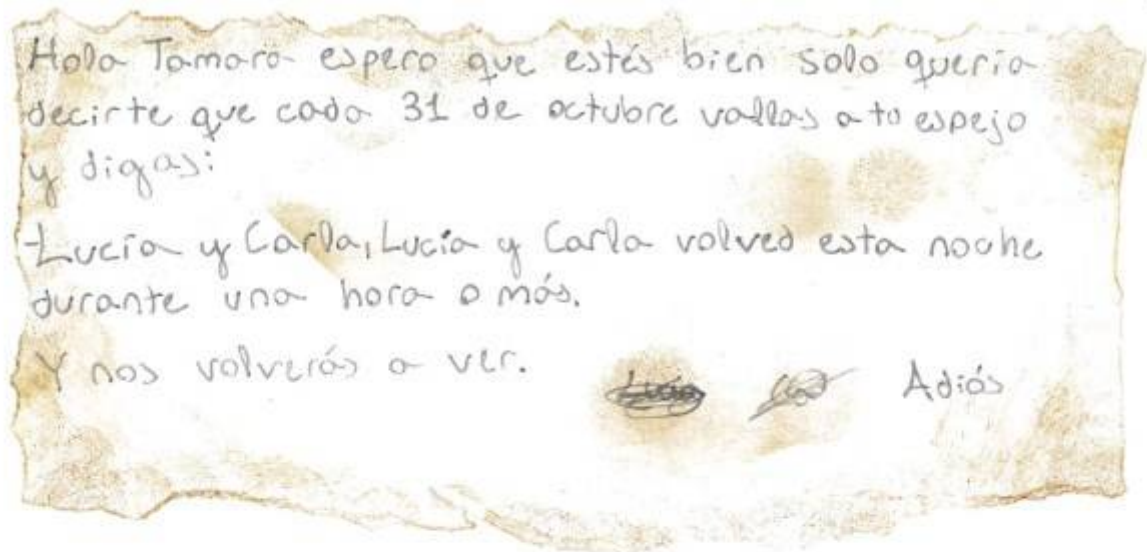 Hola Tamara espero que estés bien solo quería
decirte que cada 31 de octubre vallas a tu espejo
y digas:
-Lucía y Carla, Lucía y Carla volved esta noche
durante una hora o más.
Y nos volverás a ver.
Lucía Adiós